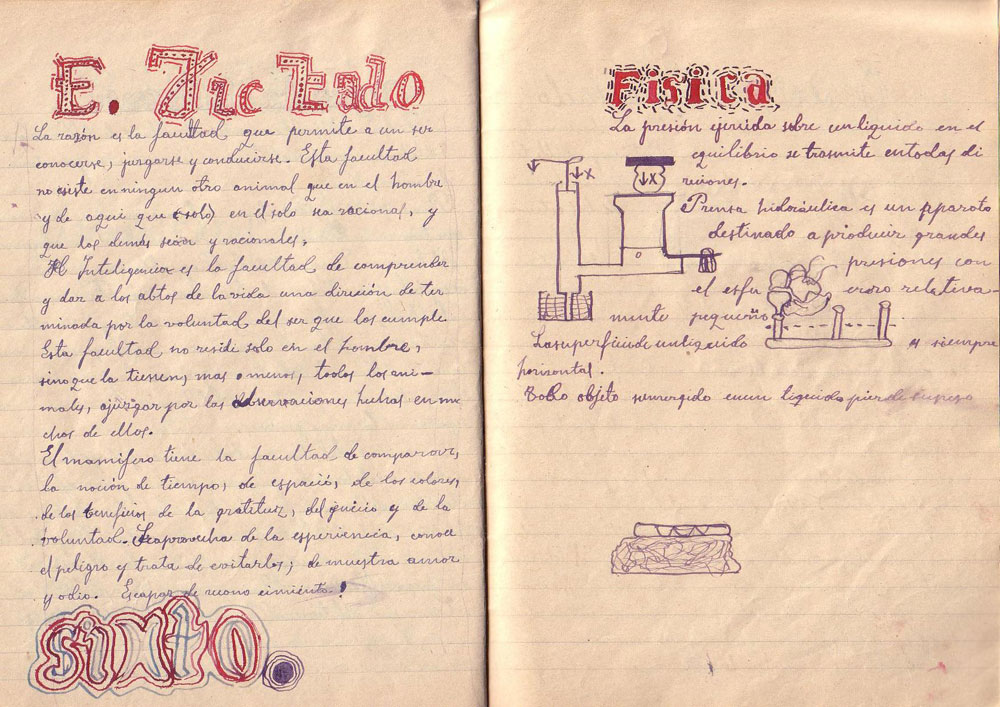 E. Dictado
La razón es la facultad que permite a un ser
conocerse, jurgarse y conducirse. Esta facultad
no esiste en ningun otro animal que en el hombre
y de aqui que (solo) en el solo sea racional, y
que los demás sean yracionales.
Inteligencia es la facultad de comprender
y dar a los abtos de la vida una dirición de ter
minada por la voluntad del ser que los cumple
Esta facultad no residi solo en el hombre,
sino que la tienen, mas o menos, todos los ani-
males, ajuzgar por las observaciones huhas en mu
chos de ellos.
El mamifero tiene la facultad de comparar,
la noción de tiempo, de espació, de los colores,
de los beneficios de la gratitur, del juicio y de la
voluntad. Seaprovecha de la esperiencia, conoce
el peligro y trata de evitarlos; de muestra amor
y odio. Escapar de
sinto.
Fisica
La presión ejercida sobre un liquido en el
equilibrio se trasmite entodas di
reciones.
x
x
Prensa hidoráulica es un aparato
destinado a producir grandes
presiones con
el esfu erzo relativa-
mente pequeño
o
La superficie de un liquido es siempre
horisontal.
Todo objeto sumergido en un liquido pierde su peso